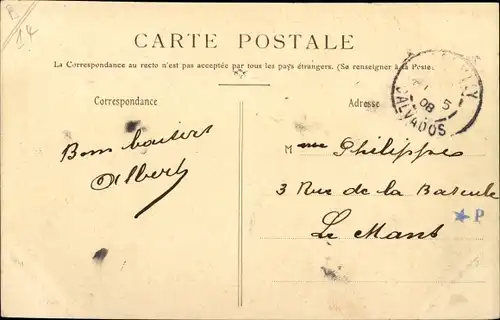 14
CARTE POSTALE
La Correspondance au recto n'est pas acceptée par tous les pays étrangers. (Se renseigner à la Poste.
Correspondance
Adresse
5
08
CALVADOS
Bons baisers
Albert
Mme Philippe
3 Rue de la Bascule
Le Mans
★ P